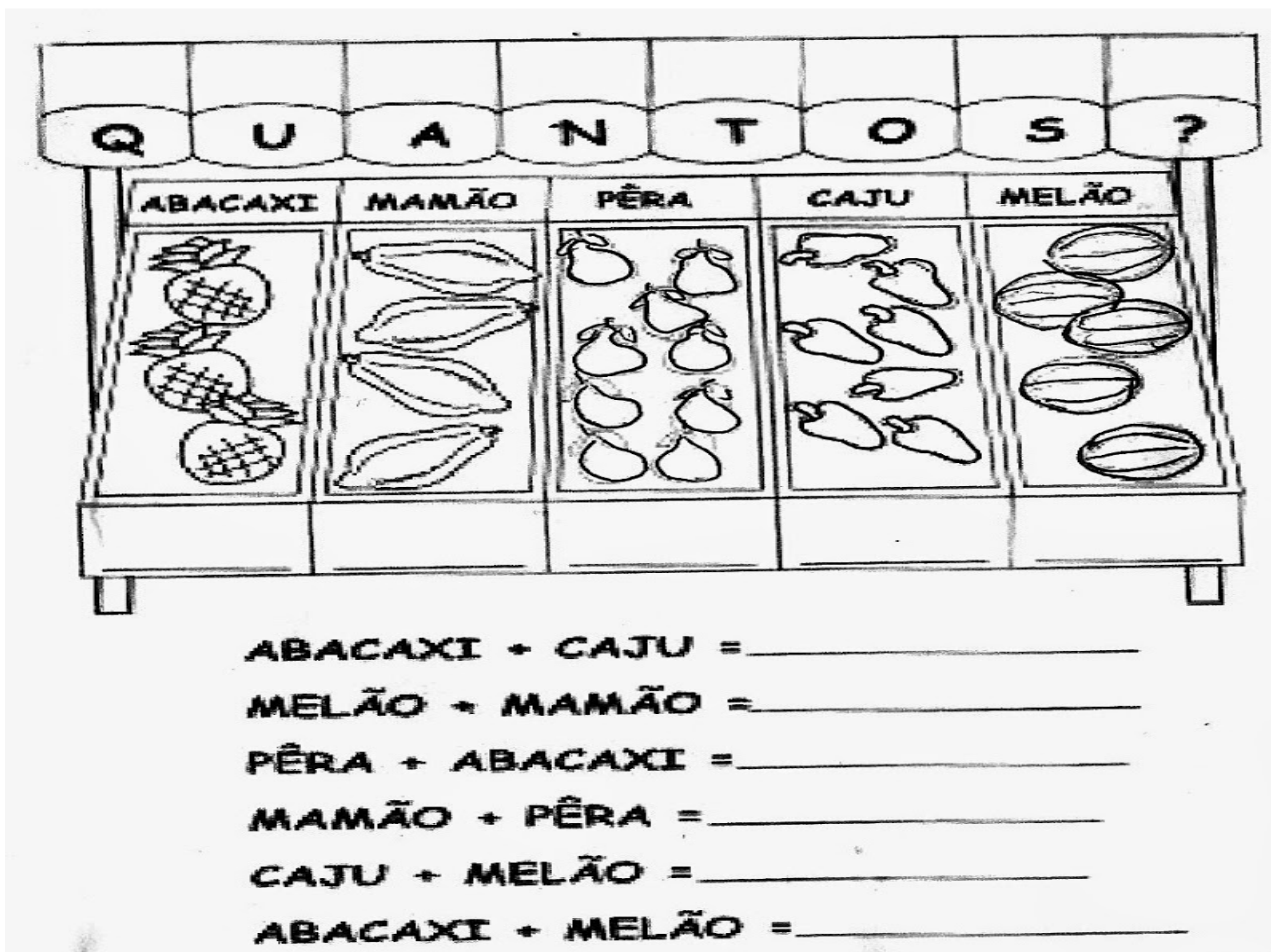 QUANTOS?
ABACAXI MAMÃO PÊRA CAJU MELÃO
ABACAXI + CAJU =
MELÃO + MAMÃO =
PÊRA + ABACAXI =
MAMÃO + PÊRA =
CAJU + MELÃO =
ABACAXI + MELÃO =